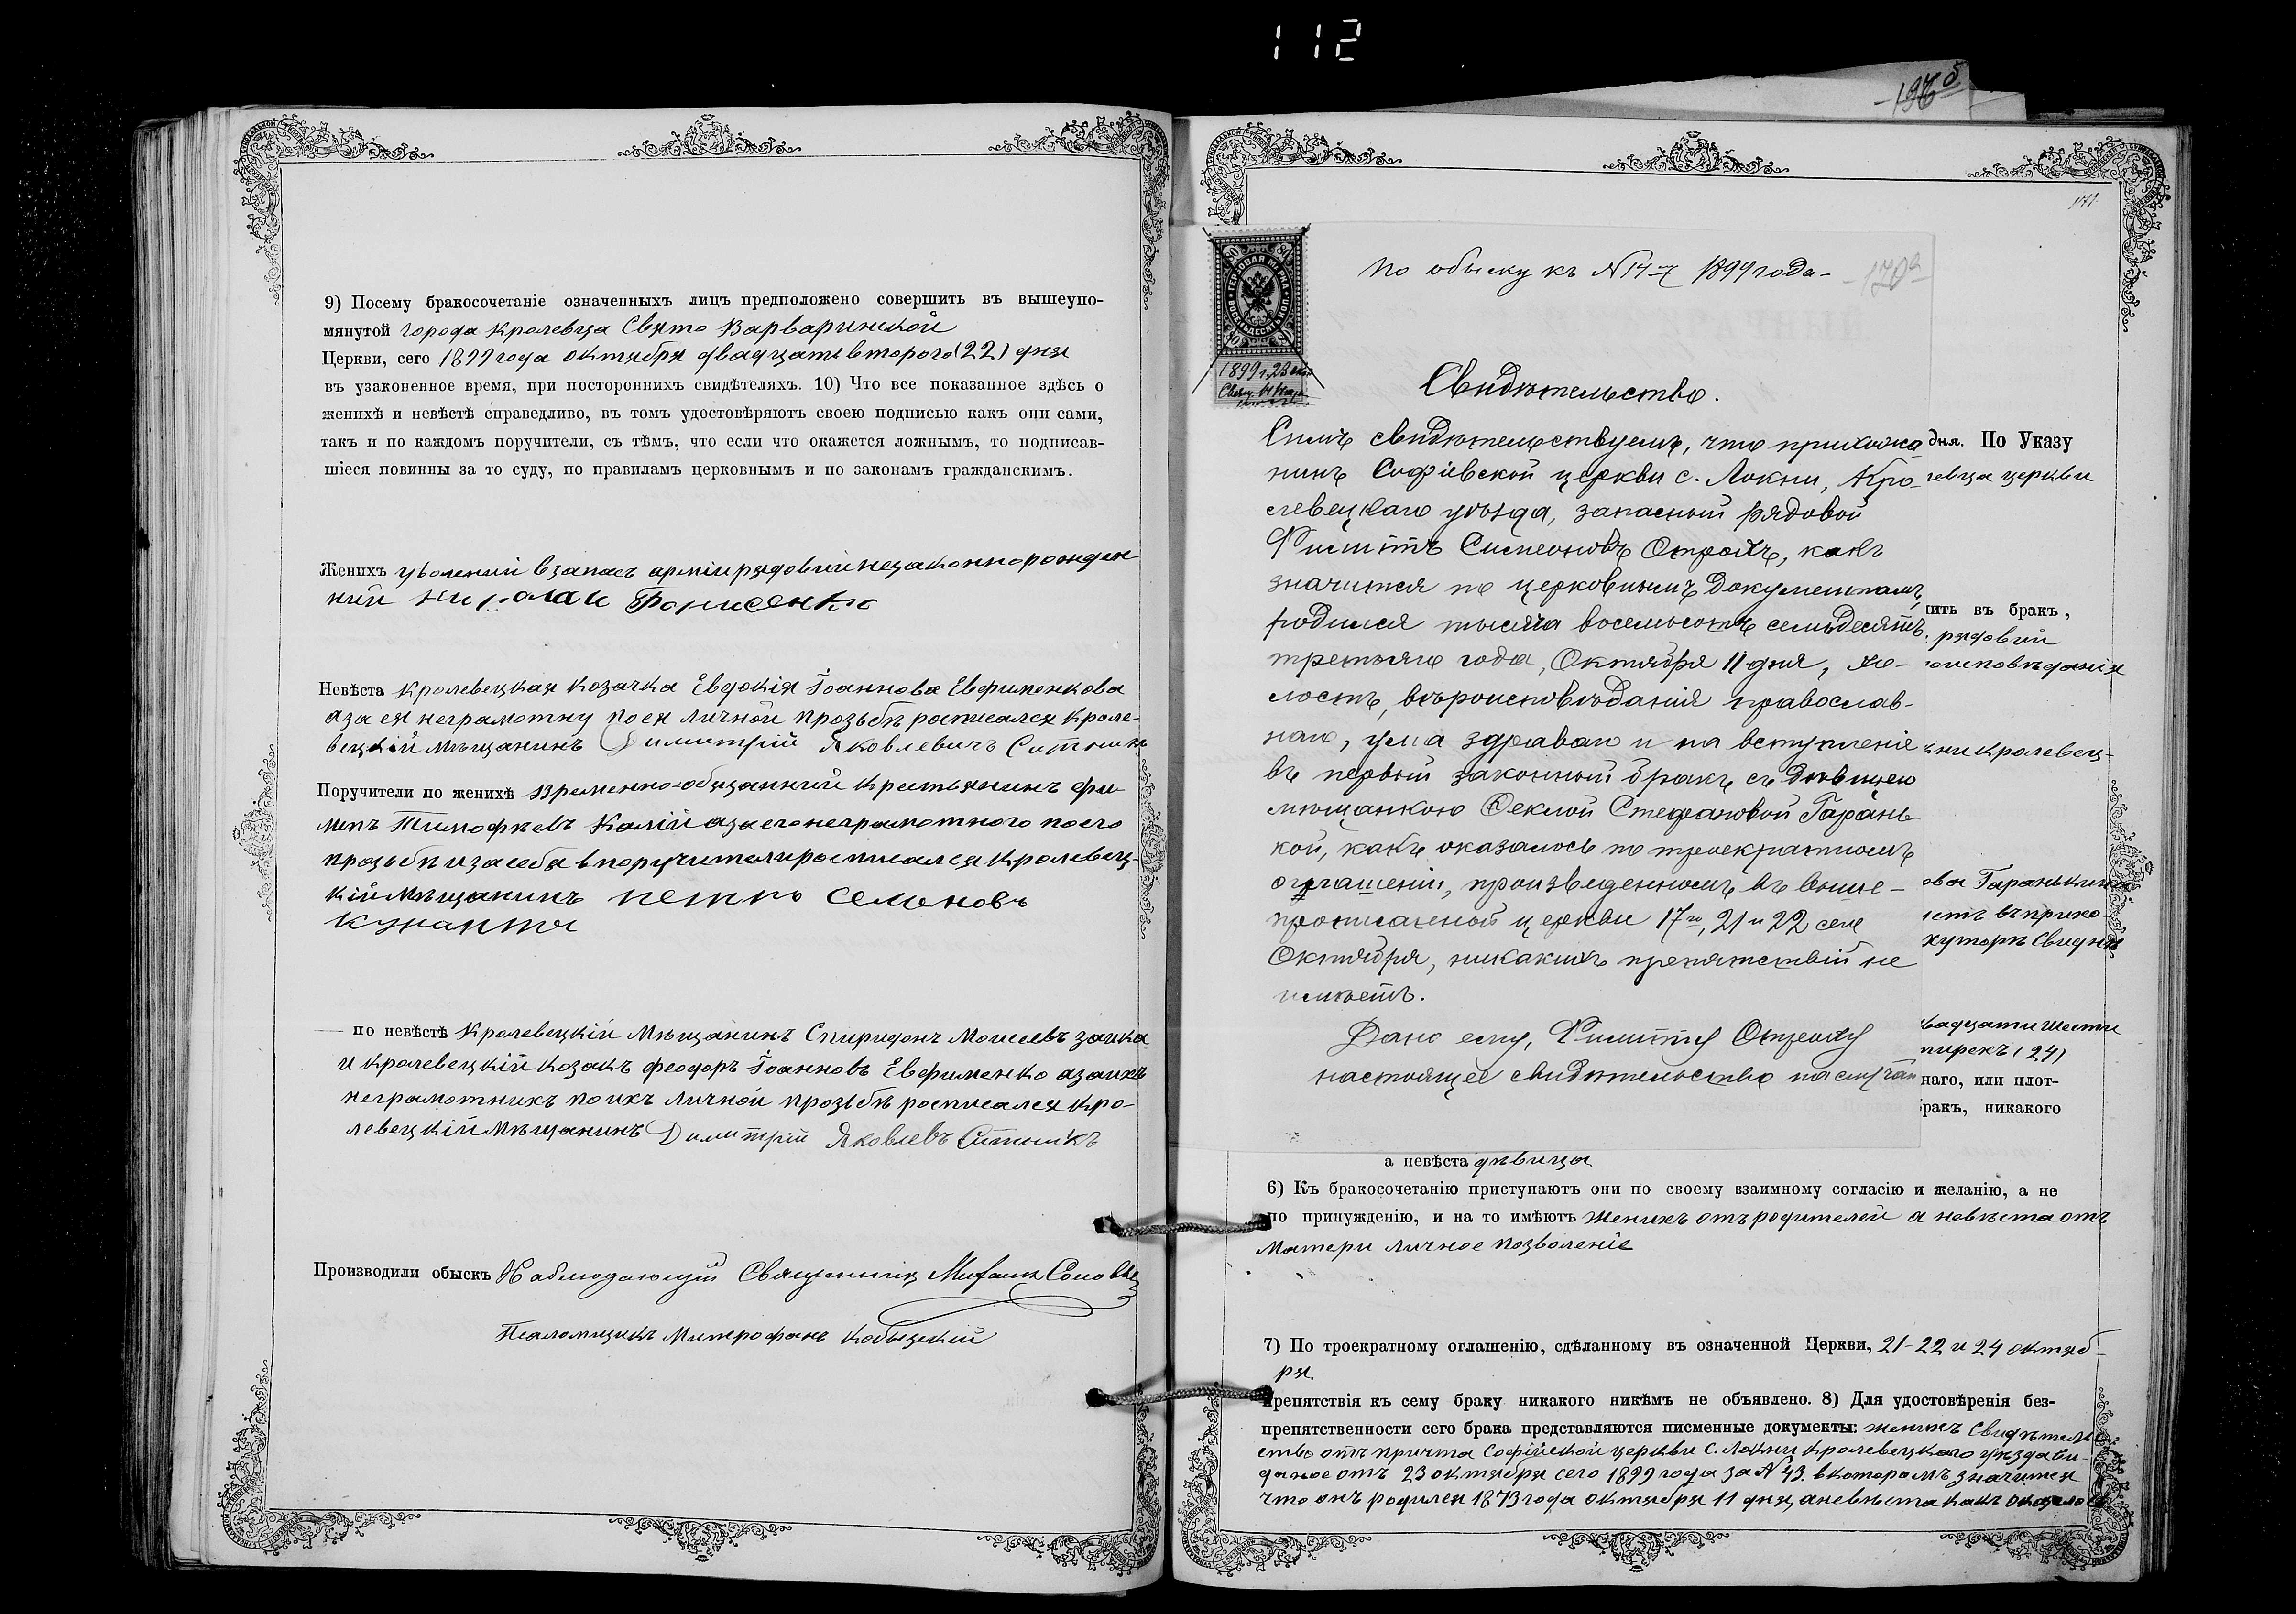 112
9) Посему бракосочетаніе означенныхъ лицъ предположено совершить въ вышеупо-
мянутой города Кролевца Свято Варваринской
Церкви, сего 1899 года октября двадцать второго (22) дня
въ узаконенное время, при постороннихъ свидѣтеляхъ. 10) Что все показанное здѣсь о
женихѣ и невѣстѣ справедливо, въ томъ удостовѣряютъ своею подписью какъ они сами,
такъ и по каждомъ поручители, съ тѣмъ, что если что окажется ложнымъ, то подписав-
шіеся повинны за то суду, по правиламъ церковнымъ и по законамъ гражданскимъ.
Женихъ уволений взапасъ арміи рядовий незаконнорожден
ний
Невѣста Кролевецкая козачка Евдокія Іоаннова Евфименкова
а за ея неграмотну по ея личной прозьбѣ росписался Кроле-
вецкій мѣщанинъ Димитрій Яковлевичъ Ситникъ
Поручители по женихѣ временно-обязанний крестьянинъ Фи
липъ Тимофѣевъ а за его неграмотного по его
прозьбѣ и за себя в поручители росписался Кролевец-
кій мѣщанинъ петро семеновъ
по невѣстѣ Кролевецкій Мѣщанинъ Спиридонъ Моисеевъ Заика
и кролевецкій козакъ Феодоръ Іоанновъ Евфименко а за ихъ
неграмотнихъ по ихъ личной прозьбѣ росписался Кро-
левецкій Мѣщанинъ Димитрій Яковлевъ Ситникъ
Производили обыскъ Наблюдающій Священникъ Михаилъ
Псаломщикъ Митрофанъ
196 б
171
170 а
По обыску къ № 147 1899 года
1899 г. 23
Свящ.
Свидѣтельство.
Симъ свидѣтельствуемъ, что прихожа
нинъ Софіевской церкви с. Локни, Кро-
левецкаго уѣзда, запасный рядовой
Филиппъ Симеоновъ Отрохъ, какъ
значится по церковнымъ документамъ,
родился тысяча восемьсотъ семьдесятъ
третьяго года, Октября 11 дня, хо-
лостъ, вѣроисповѣданія православ-
наго, ума здраваго и на вступленіе
въ первый законный бракъ съ дѣвицею
мѣщанкою Ѳеклой Стефановой Гарань-
кой, какъ оказалось по троекратномъ
оглашеніи, произведенномъ въ выше-
прописанной церкви 17го, 21 и 22 сего
Октября, никакихъ препятствій не
имѣетъ.
Дано ему, Филиппу Отроху
настоящее свидѣтельство на случай
дня. По Указу
левца церкви
пить въ бракъ,
рядовий
роисповѣданія
кни Кролевец-
ова Гаранькина
летъ въ прихо-
хуторѣ Свидни
вадцати шести
тирехъ (24)
наго, или плот-
бракъ, никакого
а невѣста дѣвица
6) Къ бракосочетанію приступаютъ они по своему взаимному согласію и желанію, а не
по принужденію, и на то имѣютъ женихъ отъ родителей а невѣста отъ
матери личное позволеніе
7) По троекратному оглашенію, сдѣланному въ означенной Церкви, 21-22 и 24 октяб-
ря
препятствія къ сему браку никакого никѣмъ не объявлено. 8) Для удостовѣренія без-
препятственности сего брака представляются писменные документы: женихъ Свидѣтель
ство отъ причта Софійской церкви С. Локни Кролевецкаго уѣзда ви-
даное отъ 23 октября сего 1899 года за № 43. в которомъ значится
что онъ родился 1873 года октября 11 дня, а невѣста какъ оказалось